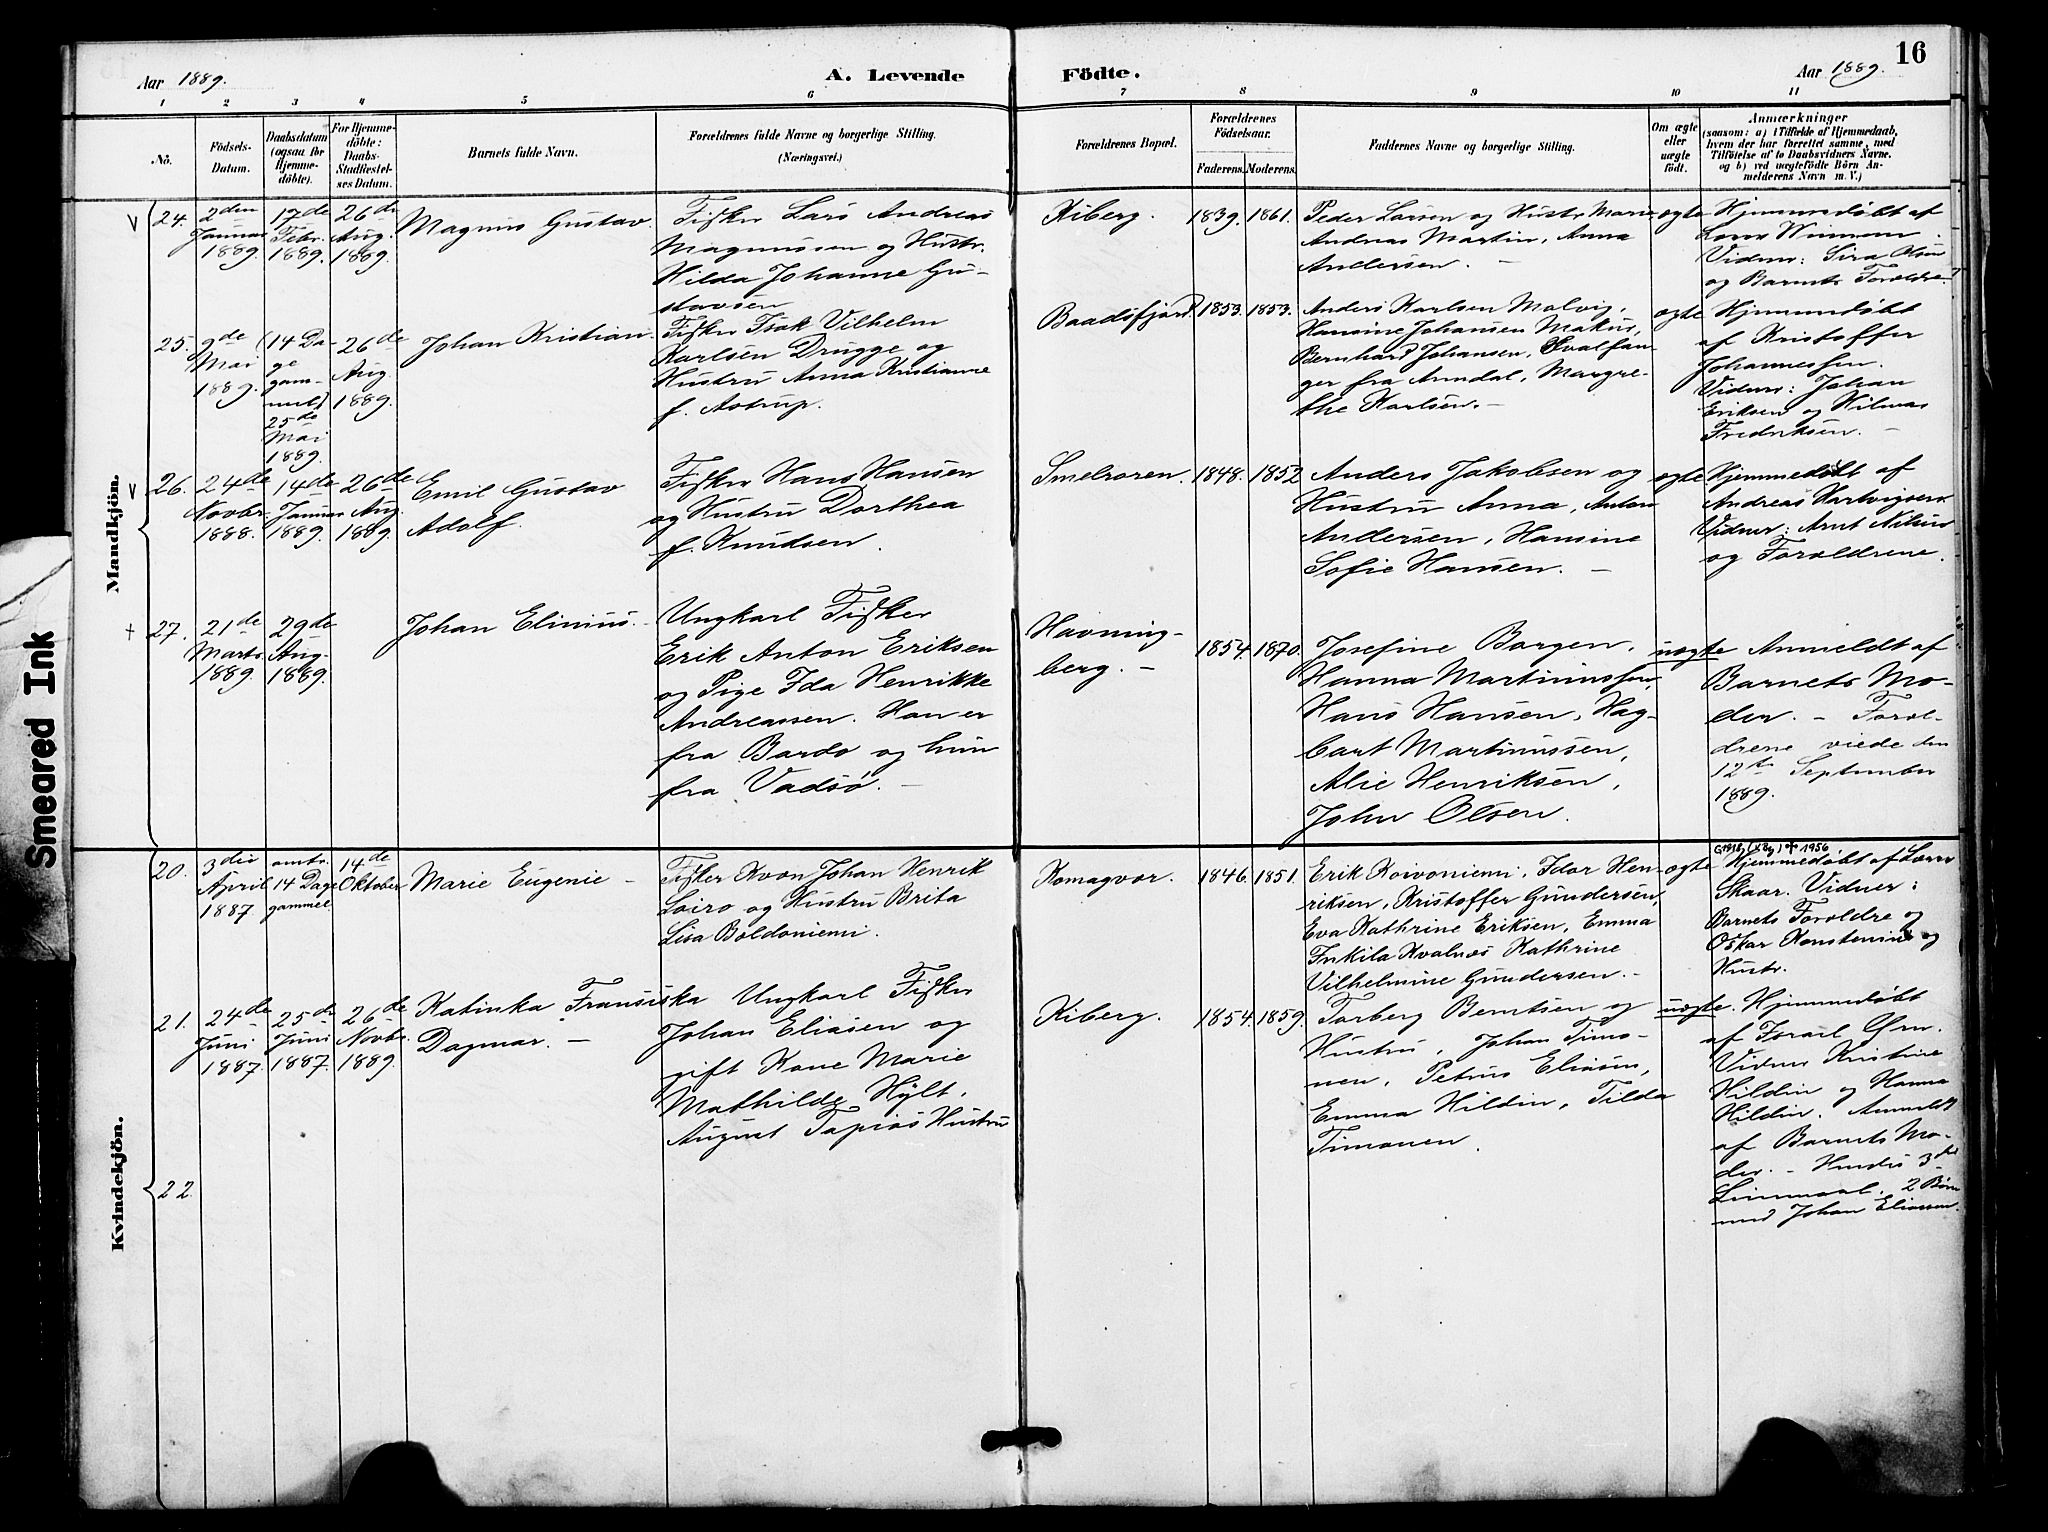 16
Aar 1889.
A. Levende Födte.
Aar 1889.
1 2 3 4 5 6 7 8 9 10 11
No.
Födsels-Datum.
Daabsdatum (ogsaa for Hjemme-döbte).
For Hjemme-döbte: Daabs-Stadfæstel-ses Datum.
Barnets fulde Navn.
Forældrenes fulde Navne og borgerlige Stilling.
(Næringsvei.)
Forældrenes Bopæl.
Forældrenes Födselsaar.
Faderens. Moderens.
Faddernes Navne og borgerlige Stilling.
Om ægte eller uægte födt.
Anmærkninger
(saasom: a) i Tilfælde af Hjemmedaab,
hvem der har forrettet samme, med
Tilföielse af to Daabsvidners Navne.
og b) ved uægtefödte Börn An-
melderens Navn m. V.)
Mandkjön.
24.
2den
Januar
1889.
17de
Febr.
1889.
26de
Aug.
1889.
Magnus Gustav.
Fisker Lars Andreas
Magnussen og Hustr.
Hilda Johanne Gu-
stavsen
Kiberg.
1839. 1861.
Peder Larsen og Hustr Marie
Andreas Martin, Anna
Andersen. –
ægte
Hjemmedøbt af
Vidner: Sira Olsen
og Barnets Forældre.
25.
9de
Mai
1889.
(14 Da-
ge
gam-
mel)
25de
Mai
1889.
26de
Aug.
1889.
Johan Kristian.
Fisker Isak Vilhelm
Karlsen Drugge og
Hustru Anna Kristianne
f. Astrup.
Baadsfjord
1853. 1853.
Anders Karlsen Malvig,
Hansine Johansen Makus,
Bernhard Johansen, Hvalfan-
ger fra Arendal, Margre-
the Karlsen. –
ægte
Hjemmedøbt
af Kristoffer
Johannessen.
Vidner: Johan
Eriksen og Hilmar
Fredriksen. –
26.
24de
Novbr.
1888.
14de
Januar
1889.
26de
Aug.
1889.
Emil Gustav
Adolf.
Fisker Hans Hansen
og Hustru Dorthea
f. Knudsen.
Smelroren.
1848. 1852
Anders Jakobsen og
Hustru Anna, Anton
Andersen, Hansine
Sofie Hansen. –
ægte
Hjemmedøbt af
Andreas Hartvigsen
Vidner: Arnt Nilsen
og Forældrene.
27.
21de
Marts
1889.
29de
Aug.
1889.
Johan Elinius.
Ungkarl Fisker
Erik Anton Eriksen
og Pige Ida Henrikke
Andreassen. Han er
fra Bardo og hun
fra Vadsø. –
Havning-
berg. –
1854. 1870.
Josefine Borgen,
Hanna Martinussen,
Hans Hansen, Hag-
bart Martinussen,
Alie Henriksen,
John Olsen.
uægte
Anmeldt af
Barnets Mo-
der. – Foræl-
drene viede den
12te September
1889.
Kvindekjön.
20.
3die
April
1887.
omtr.
14 Dage
gammel.
14de
Oktober
Marie Eugenie –
Fisker Kvæn Johan Henrik
Loiro og Hustru Brita
Lisa Boldoniemi.
Komagvær.
1846. 1851.
Erik Koivoniemi, Idar Hen-
riksen, Kristoffer Gundersen,
Eva Kathrine Eriksen, Emma
Inkila Kvalnes Kathrine
Vilhelmine Gundersen. –
ægte
† 1956
Hjemmedøbt af Lærer
Skaar. Vidner:
Barnets Forældre og
Oskar Konstenius og
Hustr.
21.
24de
Juni
1887.
25de
Juni
1887.
26de
Novbr.
1889.
Katinka Fransiska
Dagmar. –
Ungkarl Fisker
Johan Eliasen og
gift Kone Marie
Mathilde Hylt,
August Tapios Hustru
Kiberg.
1854. 1859.
Torberg Berntsen og
Hustru, Johan Timo-
nen, Petrus Eliasen,
Emma Hildin, Tilda
Timonen.
uægte.
Hjemmedøbt
Vidner Kristine
Hildin og Hanna
Hildin. Anmeldt
af Barnets Mo-
der. – Hendes 3die
Leiermaal. 2 Børn
med Johan Eliassen.
22.
Smeared Ink